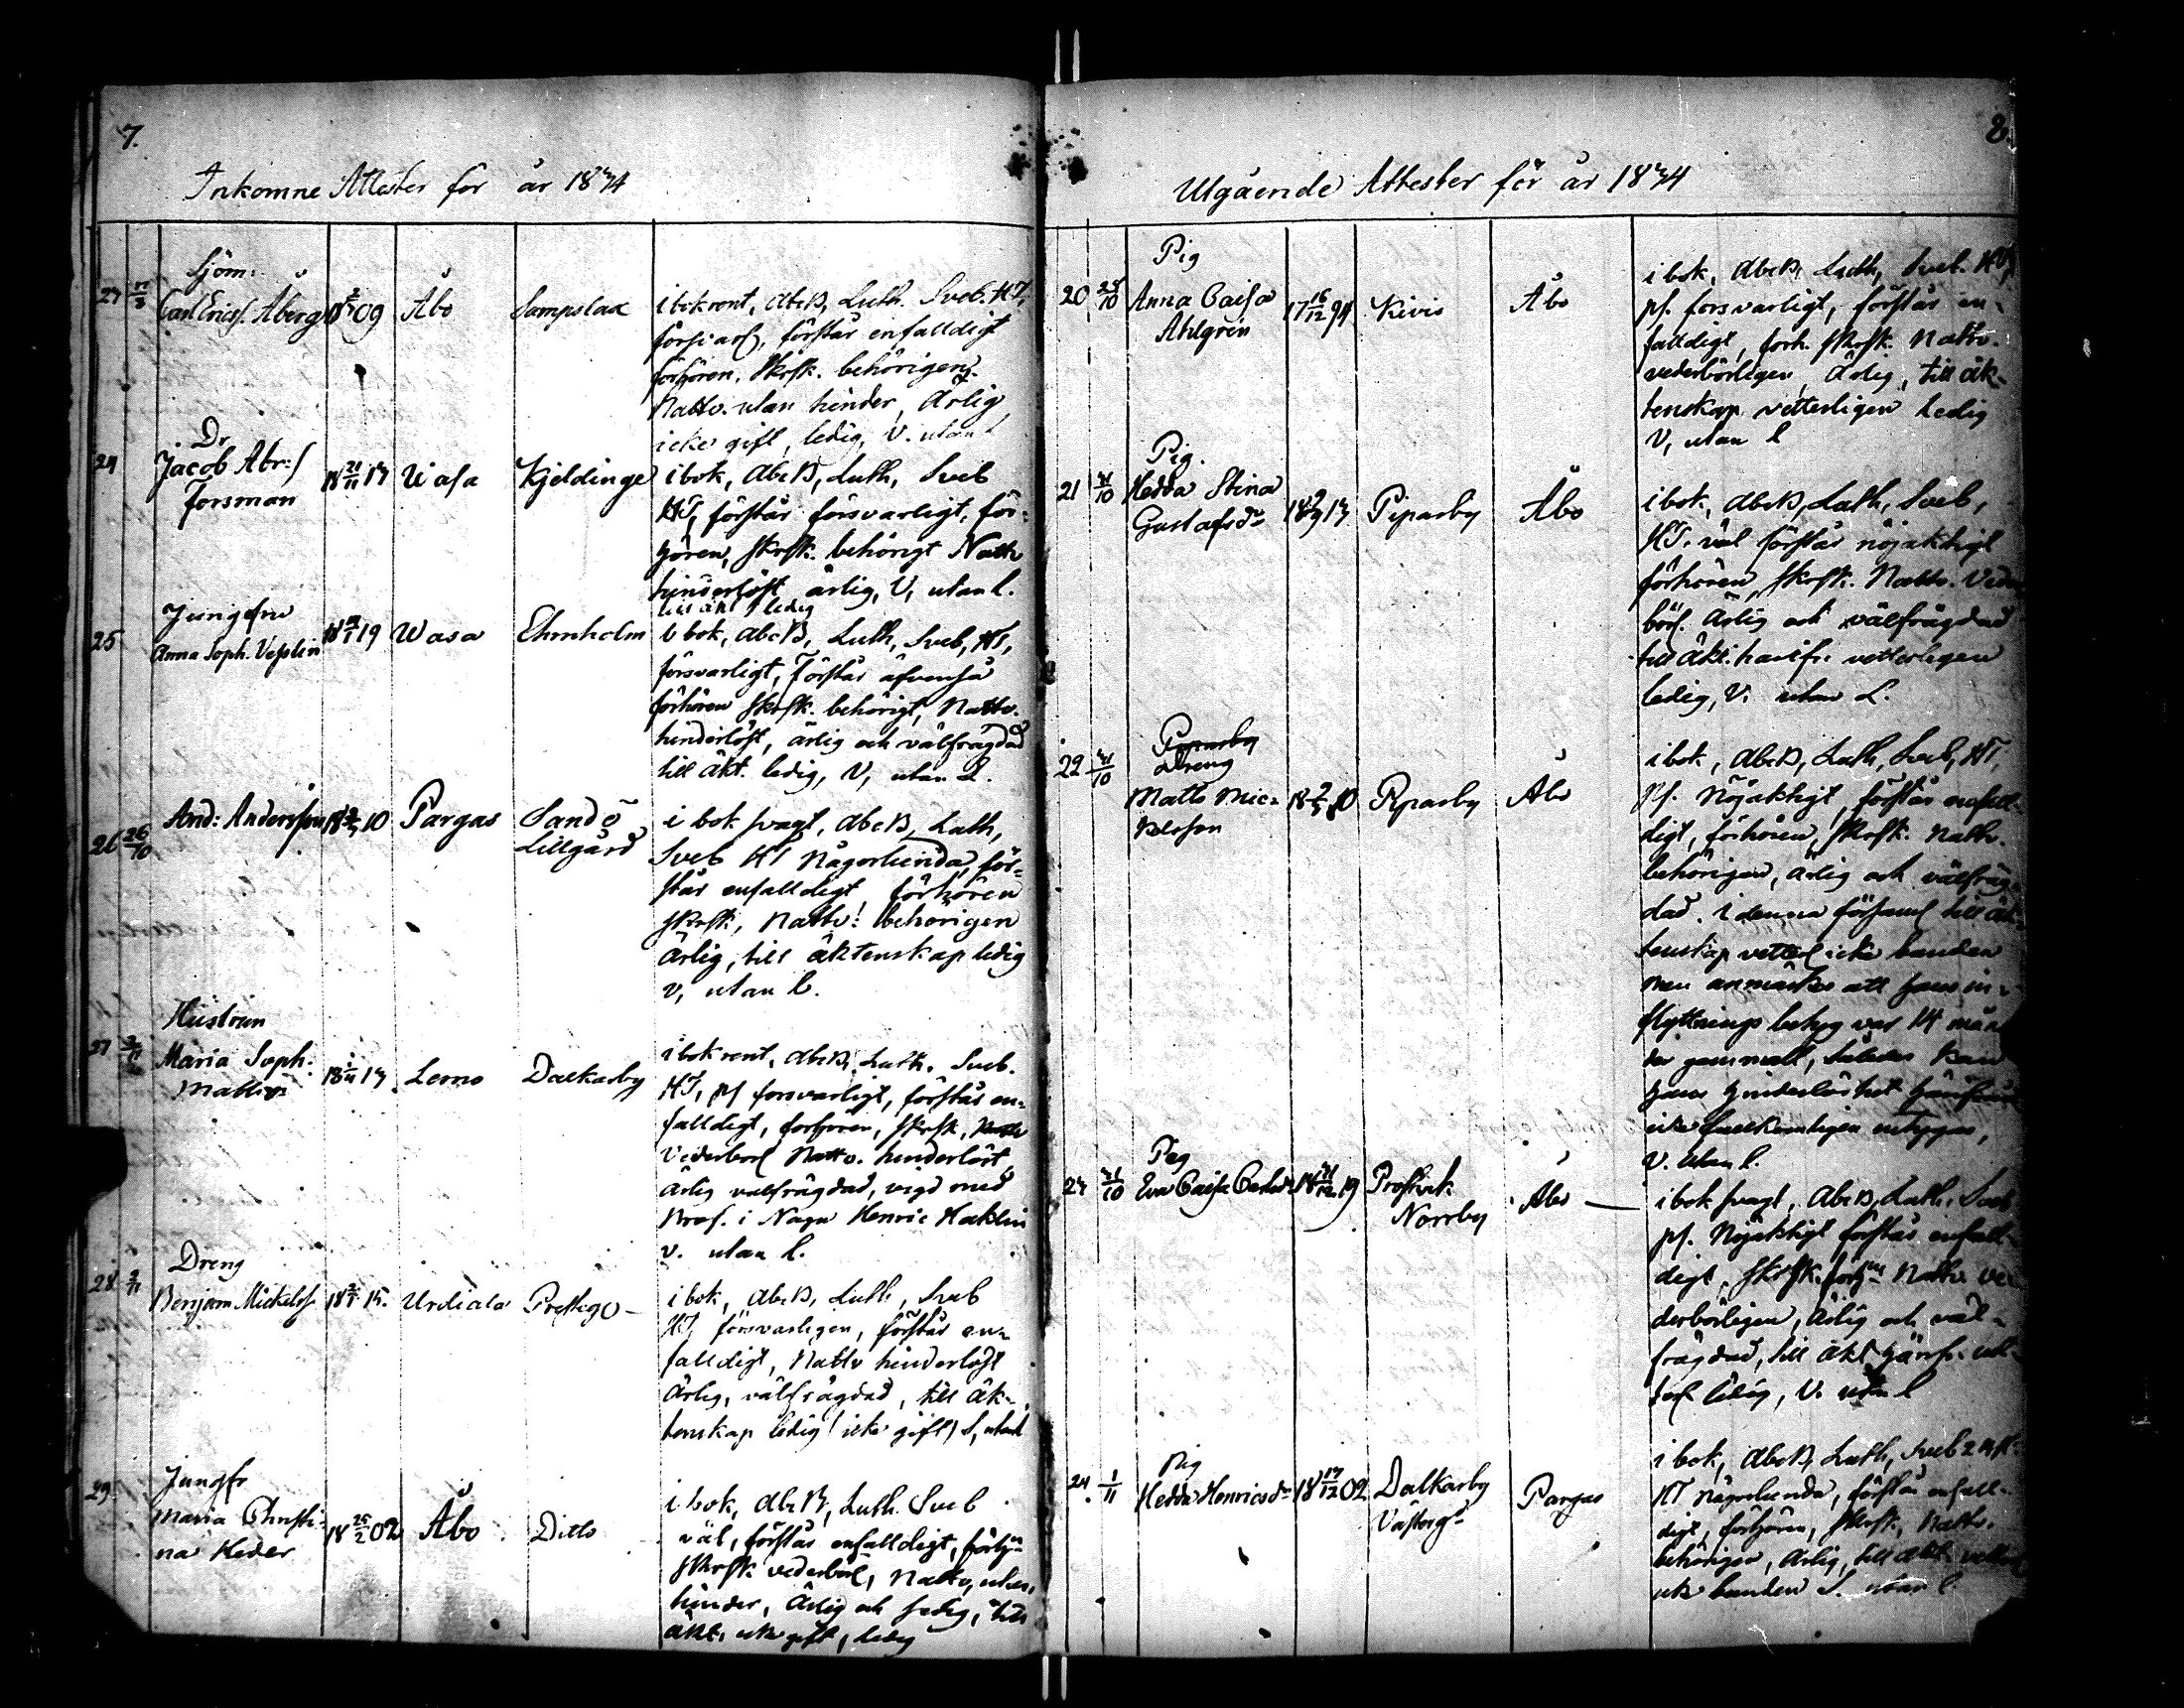 7.
Inkomne Attester för år 1844
Sjöm:
Carl Ericss. Åberg 09 Åbo Sampslax
i bok rent, AbcB, Luth. Sveb. HT,
försvarl, förstår enfalldigt
förhören, Skrsk. behörigen,
Nattv. utan hinder, Ärlig,
icke gift, ledig, V. utan l
24 Dr
Jacob Abr:s
Forsman 18 21/11 17 Wasa Kjeldinge
i bok, AbcB, Luth, Sveb
HT, förstår försvarligt, för-
hören, Skrsk. behörigt Nattv
hinderlöst ärlig, V, utan l.
till äkt ledig
25 Jungfru
Anna Soph. Vesslin 19 Wasa Ehrnholm
i bok, AbcB, Luth, Sveb, HT,
försvarligt, Förstår äfvenså
förhören Skrsk. behörigt, Nattv.
hinderlöst, ärlig och välfrägdad
till äkt. ledig, V, utan l.
26 26/10 And: Andersson 10 Pargas Sandö
Lillgård
i bok svagt, AbcB, Luth,
Sveb HT Någorlunda, för-
står enfalldigt förhören
Skrsk, Nattv: behörigen
Ärlig, till äktenskap ledig
V, utan l.
27 Hustrun
Maria Soph:
Mattsdr 17 Lemo Dalkarby
i bok rent, AbcB, Luth, Sveb.
HT, ps försvarligt, förstår en-
falldigt, förhören, Skrsk, Nattv
Vederborl Nattv. hinderlöst
Ärlig välfrägdad, vigd med
Henric
V. utan l.
28 2/11 Dreng
Benjam Mickelss 15. Urdiala Prestgo
i bok, AbcB, Luth, Sveb
HT, försvarligen, förstår en-
falldigt, Nattv hinderlöst
Ärlig, välfrägdad, till äk-
tenskap ledig (icke gift)
29. Jungfr
Maria Christi-
na Heder 18 25/2 02 Åbo Ditto
i bok, AbcB, Luth. Sveb
väl, förstår enfalldigt, förhjn
Skrsk vederbörl, Nattv, utan
hinder, Ärlig och
äkt. gift, ledig
8.
Utgående Attester för år 1844
20 28/10 Pig
Anna Caisa
Ahlgrén 17 16/12 94 Kivis Åbo
i bok, AbcB, Luth, Sveb. HT,
ps. försvarligt, förstår en-
falldigt, förh. Skrsk. Nattv.
vederbörligen, Ärlig, till äk-
tenskap vetterligen ledig
V, utan l
21 Pig.
Hedda Stina
Gustafsdr 17 Piparby Åbo
i bok, AbcB, Luth, Sveb,
HT. väl förstår nöjaktigt
förhören, Skrsk. Nattv. Veder
börl. Ärlig och välfrägdad
till äkt. härifr. vetterligen
ledig, V. utan l.
22 Piparby
Dreng
Matts Mic-
kelsson 10 Piparby Åbo
i bok, AbcB, Luth, Sveb, HT,
ps. Nöjaktigt, förstår enfall-
digt, förhören, Skrsk. Nattv.
behörigen, ärlig och välfräg-
dad. i denna församl till äk-
tenskap vetterl icke bunden
men anmärkes att hans in-
flyttnings betyg var 14 måna
der gammalt, således kan
hans hinderlöshet
icke fullkomligen intygas,
V. utan l.
Pig
Eva Caisa Carlsdr 19 Prostvik
Norrby Åbo
i bok svagt, AbcB, Luth, Sveb
ps. Nöjaktigt förstår enfall-
digt, Skrsk. Nattv. ve-
derbörligen, Ärlig och väl-
frägdad, till äkt härifr. vet-
terl ledig, V. utan l
24. 1/11 Pig
Hedda Henricsdr 18 17/12 02 Dalkarby
Pargas
i bok, AbcB, Luth, Sveb
HT Någorlunda, förstår enfall-
digt, förhören, Skrsk, Nattv.
behörigen, Ärlig, till äkt
bunden utan l